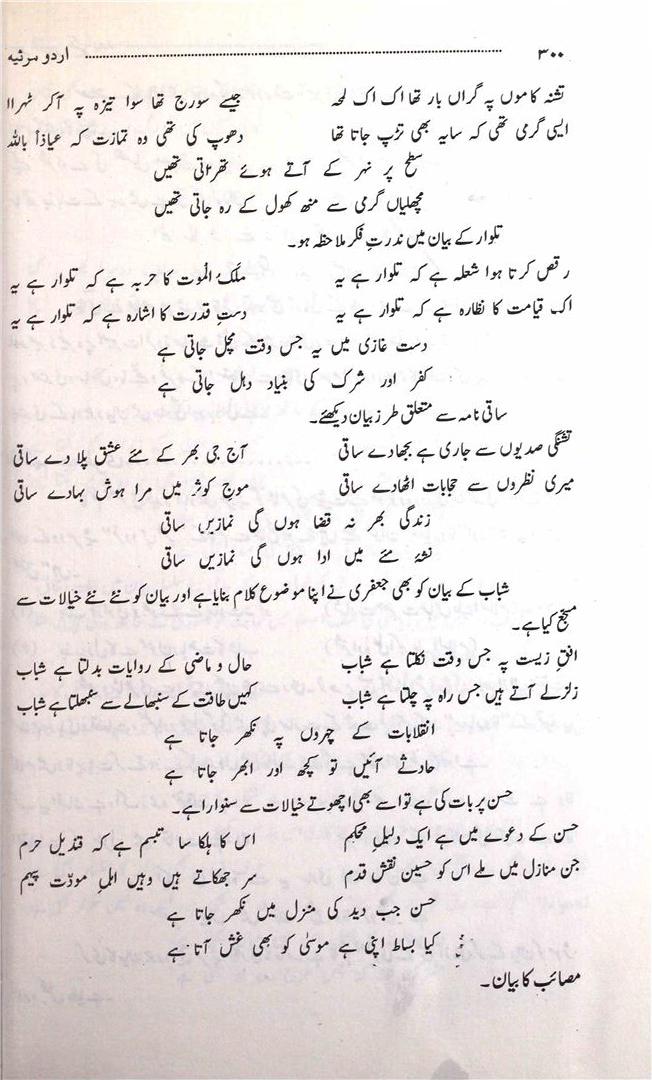 ۳۰۰ اردو مرثیہ
تشنہ کاموں پہ گراں بار تھا اک اک لمحہ جیسے سورج تھا سوا نیزہ پہ آکر ٹھہرا
ایسی گرمی تھی کہ سایہ بھی تڑپ جاتا تھا دھوپ کی تھی وہ تمازت کہ عیاذاً باللہ
سطح پر نہر کے آتے ہوئے تھرتاتی تھیں
مچھلیاں گرمی سے منھ کھول کے رہ جاتی تھیں
تلوار کے بیان میں ندرتِ فکر ملاحظہ ہو۔
رقص کرتا ہوا شعلہ ہے کہ تلوار ہے یہ ملک الموت کا حربہ ہے کہ تلوار ہے یہ
اک قیامت کا نظارہ ہے کہ تلوار ہے یہ دستِ قدرت کا اشارہ ہے کہ تلوار ہے یہ
دست غازی میں یہ جس وقت مچل جاتی ہے
کفر اور شرک کی بنیاد دہل جاتی ہے
ساقی نامہ سے متعلق طرز بیان دیکھئے۔
تشنگی صدیوں سے جاری ہے بجھادے ساقی آج جی بھر کے مئے عشق پلا دے ساقی
میری نظروں سے حجابات اٹھادے ساقی موجِ کوثر میں مرا ہوش بہادے ساقی
زندگی بھر نہ قضا ہوں گی نمازیں ساقی
نشۂ مئے میں ادا ہوں گی نمازیں ساقی
شباب کے بیان کو بھی جعفری نے اپنا موضوع کلام بنایا ہے اور بیان کو نئے نئے خیالات سے
مسجع کیا ہے۔
افقِ زیست پہ جس وقت نکلتا ہے شباب حال و ماضی کے روایات بدلتا ہے شباب
زلزلے آتے ہیں جس راہ پہ چلتا ہے شباب کہیں طاقت کے سنبھالے سے سنبھلتا ہے شباب
انقلابات کے چہروں پہ نکھر جاتا ہے
حادثے آئیں تو کچھ اور ابھر جاتا ہے
حسن پر بات کی ہے تو اسے بھی اچھوتے خیالات سے سنوارا ہے۔
حسن کے دعوے میں ہے ایک دلیلِ محکم اس کا ہلکا سا تبسم ہے کہ قندیل حرم
جن منازل میں ملے اس کو حسین نقش قدم سر جھکاتے ہیں وہیں اہلِ مودّت پیہم
حسن جب دید کی منزل میں نکھر جاتا ہے
کیا بساط اپنی ہے موسیٰ کو بھی غش آتا ہے
مصائب کا بیان۔